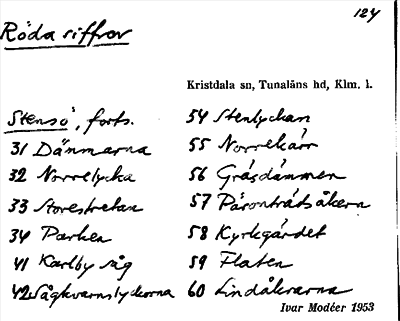 124
Röda siffror
Kristdala sn, Tunaläns hd, Klm. l.
Stensö, forts.
31 Dämmarna
32 Norrelycka
33 Storestretan
34 Parken
41 Karlby såg
42 Sågkvarnslyckorna
54 Stenlyckan
55 Norrekärr
56 Gräsdammen
57 Päronträdsåkern
58 Kyrkgärdet
59 Flaten
60 Lindåkrarna
Ivar Modéer 1953